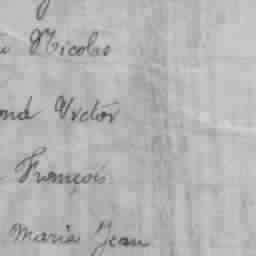 Nicolas
ond Victor
François
Maria Jean